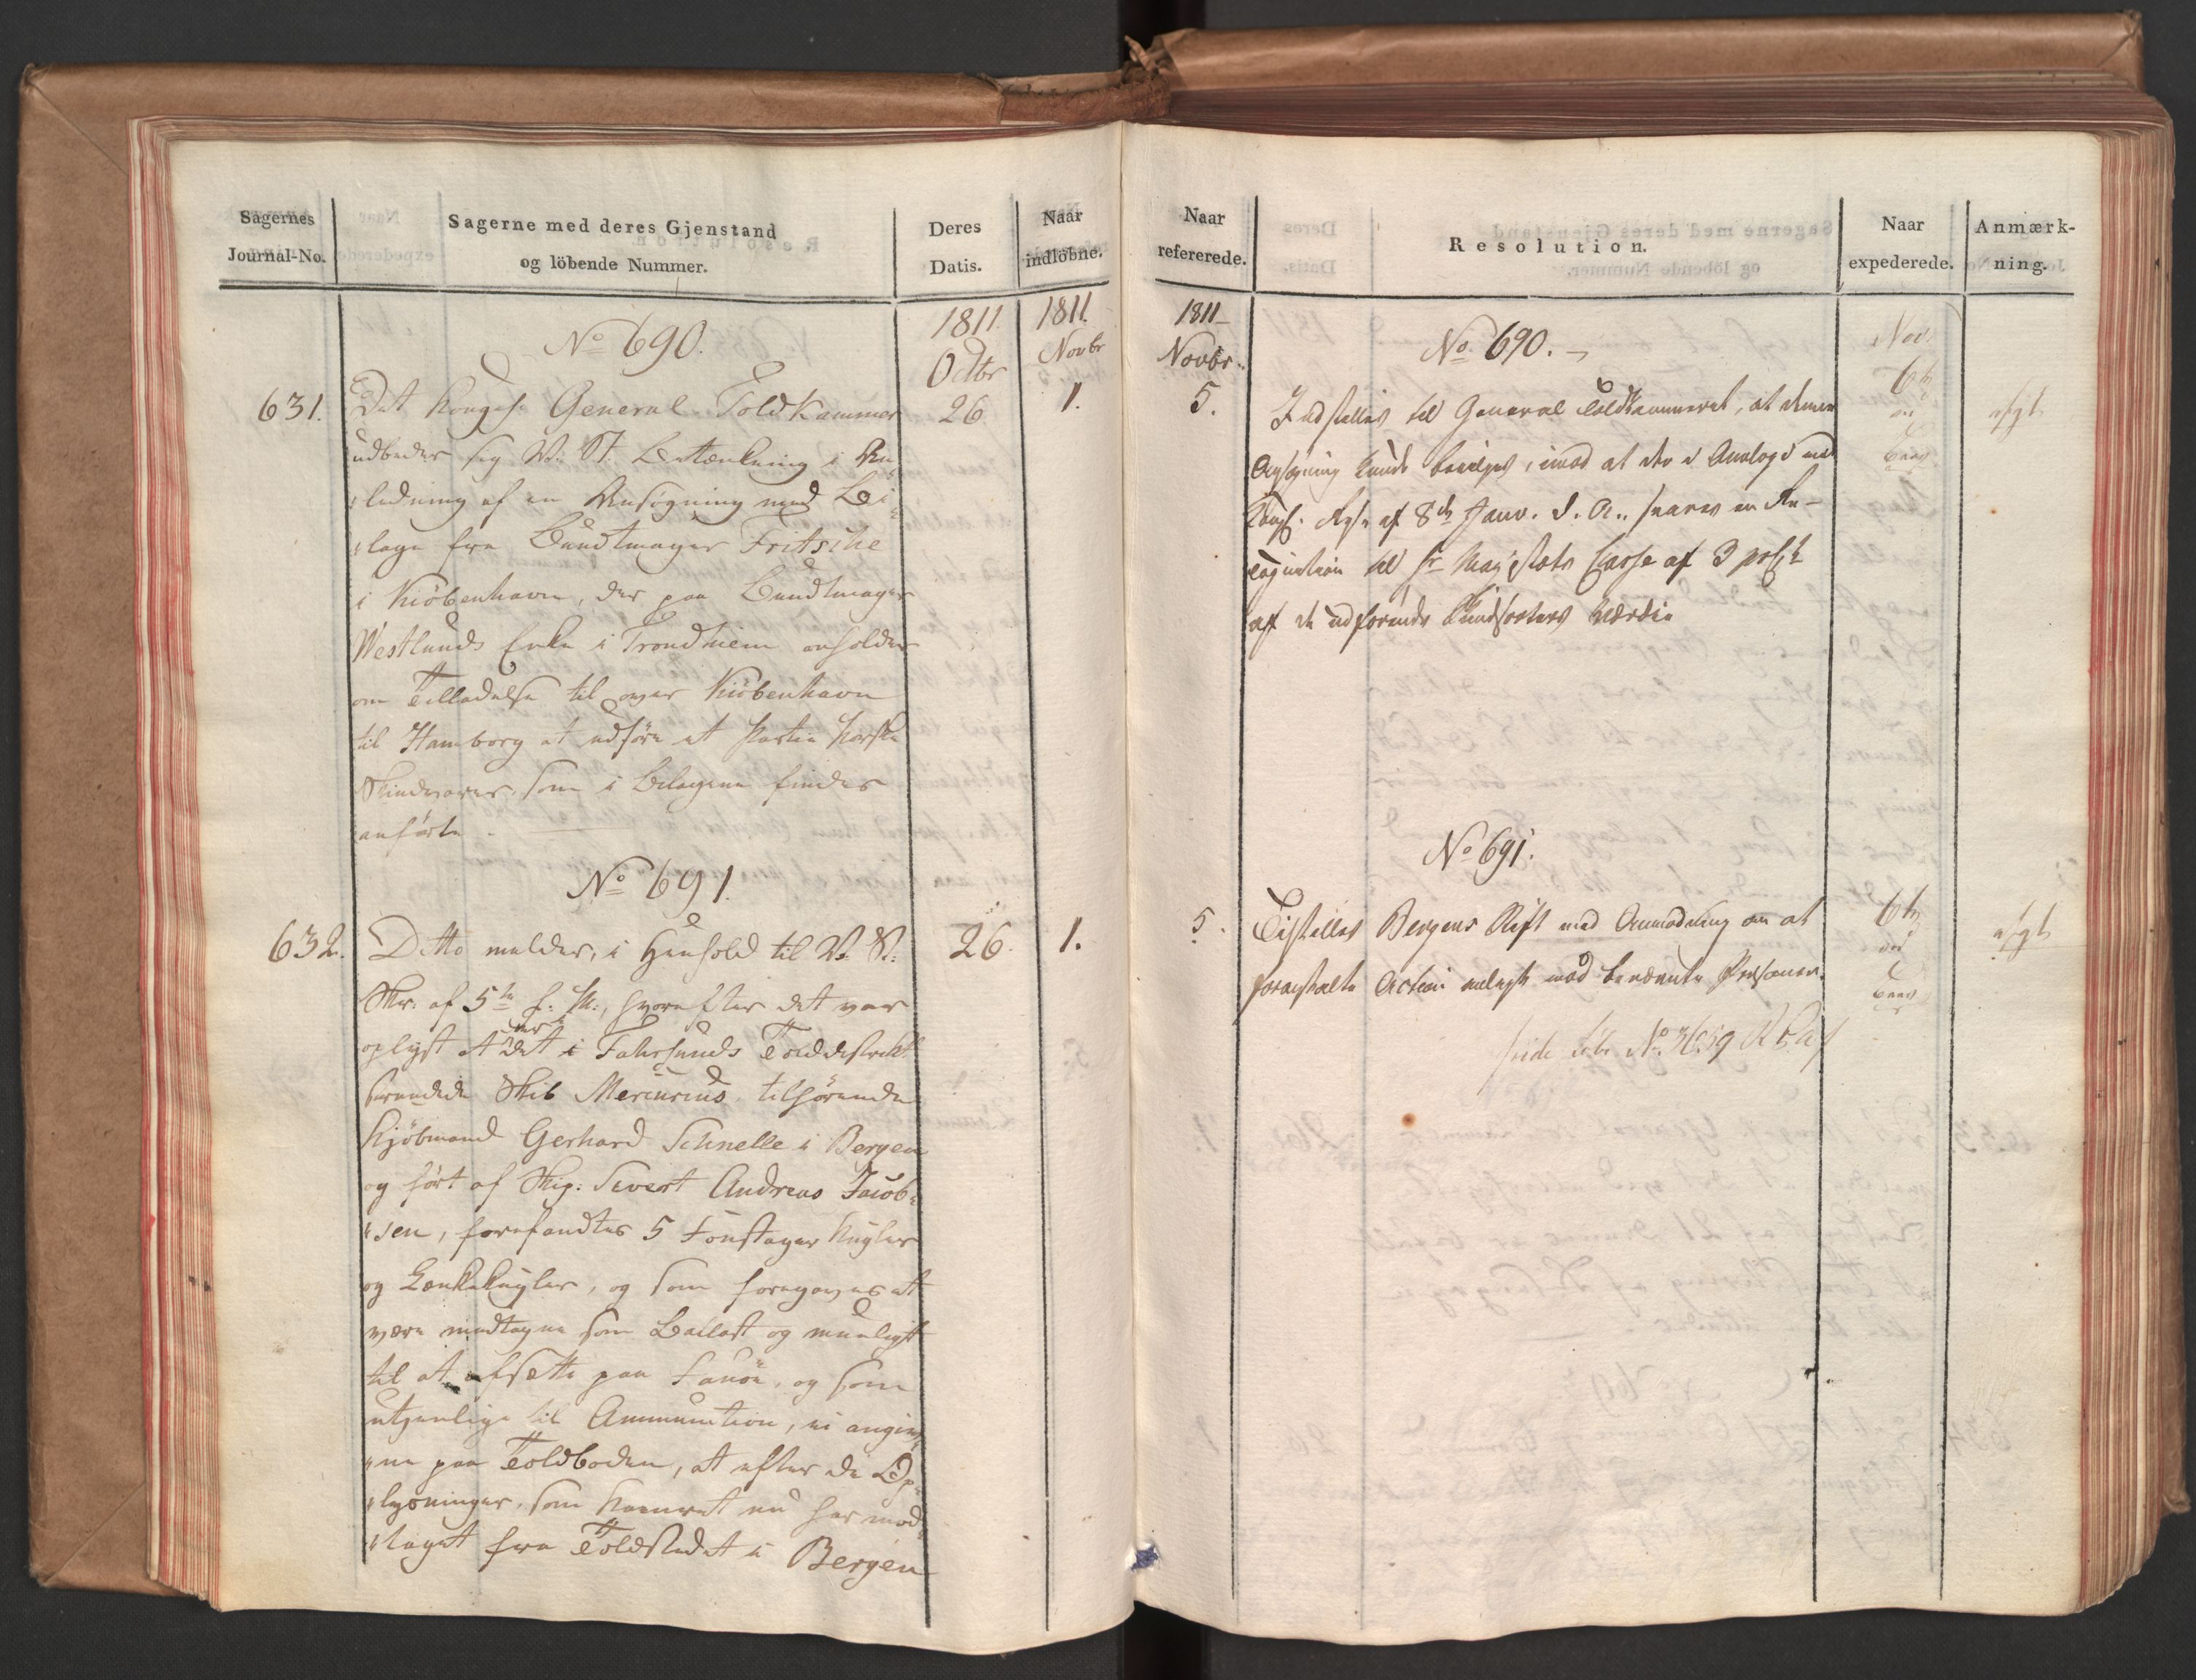 Sagernes
Journal-No.
Sagerne med deres Gjenstand
og löbende Nummer.
Deres
Datis.
Naar
indlöbne.
1811.
Octbr
1811.
Novbr
No 690.
631.
26
1.
Det Kongel. General Toldkammer
udbeder sig V. St. Betænkning i An¬
ledning af en Ansögning med Bi¬
lage fra Bundtmager Fritsche
i Kiöbenhavn, der paa Bundtmager
Westlunds Enke i Trondhiem anholder
om Tilladelse til over Kiöbenhavn
til Hamborg at udföre et Partie Norske
Skindvarer, som i Bilagene findes
anförte.
No 691.
632.
26.
1.
Ditto melder, i Henhold til V. St.
Skr: af 5te f: M:, hvorefter det var
oplyst at der i det i Fahrsunds Tolddistrikt
strandede Skib Mercurius, tilhörende
Kjöbmand Gerhard Schnelle i Bergen
og fört af Skip: Sivert Andreas Jacob¬
sen, forefandtes 5 Foustager Kugler
og Lænkekugler, og som foregaves at
være medtagne som Ballast og mueligt
til at afsætte paa Fanöe, og som
utjenlige til Ammunition, ei angiv¬
ne paa Toldboden, at efter de Op¬
lysninger, som Kamret nu har mod¬
taget fra Toldstedet i Bergen
Naar
refererede.
Resolution.
Naar
expederede.
Anmærk-
ning.
1811
Novbr.
Nov.
No. 690.
5.
6te
Indstilles til General Toldkammeret, at denne
Ansögning kunde bevilges, imod at der i Analogie med
Kongl. Resn. af 8de Janv. d. A., svares en Re-
cognition til Hs Majestæts Casse af 3 proCt
af de udförende Skindsorters Værdie
afgt
No 691.
5.
6te
Tilstilles Bergens Stift med Anmodning om at
foranstalte Action anlagt mod benævnte Personer.
afgt